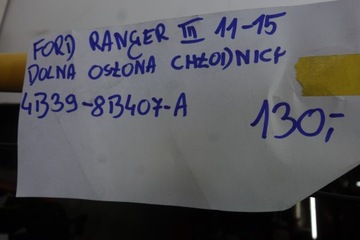 FORD RANGER III 11-15
DOLNA OSŁONA CHŁODNICY
4B39-8B407-A
130,-